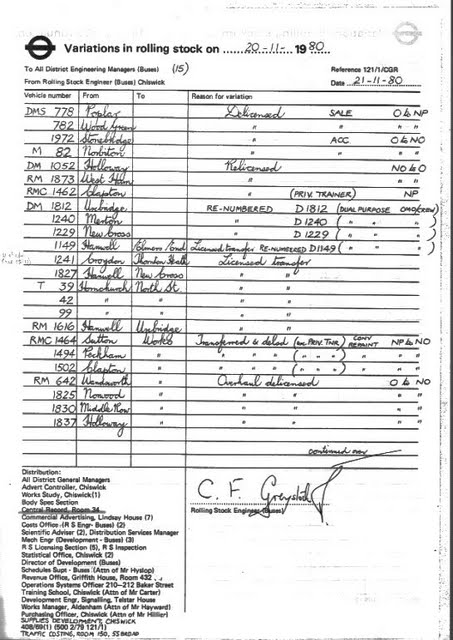 Variations in rolling stock on 20-11- 1980
To All District Engineering Managers (Buses) (15) Reference 121/1/CGR
From Rolling Stock Engineer (Buses) Chiswick Date 21-11-80
Vehicle number From To Reason for variation
DMS 778 Poplar Delicensed SALE O to NP
782 Wood Green " " " "
1972 Stonebridge " ACC O to NO
M 82 Norbiton " " " "
DM 1052 Holloway Relicensed NO to O
RM 1873 West Ham " "
RMC 1462 Clapton " (PRIV. TRAINER) NP
DM 1812 Uxbridge " RE-NUMBERED D 1812 (DUAL PURPOSE OMO/CREW)
1240 Merton " D 1240 ( " " " )
1229 New Cross " D 1229 ( " " " )
1149 Hanwell Elmers End Licensed transfer RE-NUMBERED D1149 ( " " " )
1241 Croydon Thornton Heath Licensed transfer
1827 Hanwell New Cross " "
T 39 Hornchurch North St. " "
42 " " " "
99 " " " "
RM 1616 Hanwell Uxbridge " "
RMC 1464 Sutton Works Transferred & delsd (ex PRIV. TNR) CONV REPAINT NP to NO
1494 Peckham " " " " ( " " " ) " " "
1502 Clapton " " " " ( " " " ) " " "
RM 642 Wandsworth " Overhaul delicensed O to NO
1825 Norwood " " " " "
1830 Middle Row " " " " "
1837 Holloway " " " " "
continued over
Distribution:
All District General Managers
Advert Controller, Chiswick
Works Study, Chiswick(1)
Body Spec Section
Central Record, Room 34
Commercial Advertising, Lindsay House (7)
Costs Office (R S Engr- Buses) (2)
Scientific Adviser (2), Distribution Services Manager
Mech Engr (Development - Buses) (3)
R S Licensing Section (5), R S Inspection
Statistical Office, Chiswick (2)
Director of Development (Buses)
Schedules Supt - Buses (Attn of Mr Hyslop)
Revenue Office, Griffith House, Room 432
Operations Systems Officer 210-212 Baker Street
Training School, Chiswick (Attn of Mr Carter)
Development Engr, Signalling, Telstar House
Works Manager, Aldenham (Attn of Mr Hayward)
Purchasing Officer, Chiswick (Attn of Mr Hillier)
SUPPLIES DEVELOPMENT, CHISWICK
408/69(1) (500 2/79 121/1)
TRAFFIC COSTING, ROOM 150, 55 BROAD
C. F.
Rolling Stock Engineer (Buses)